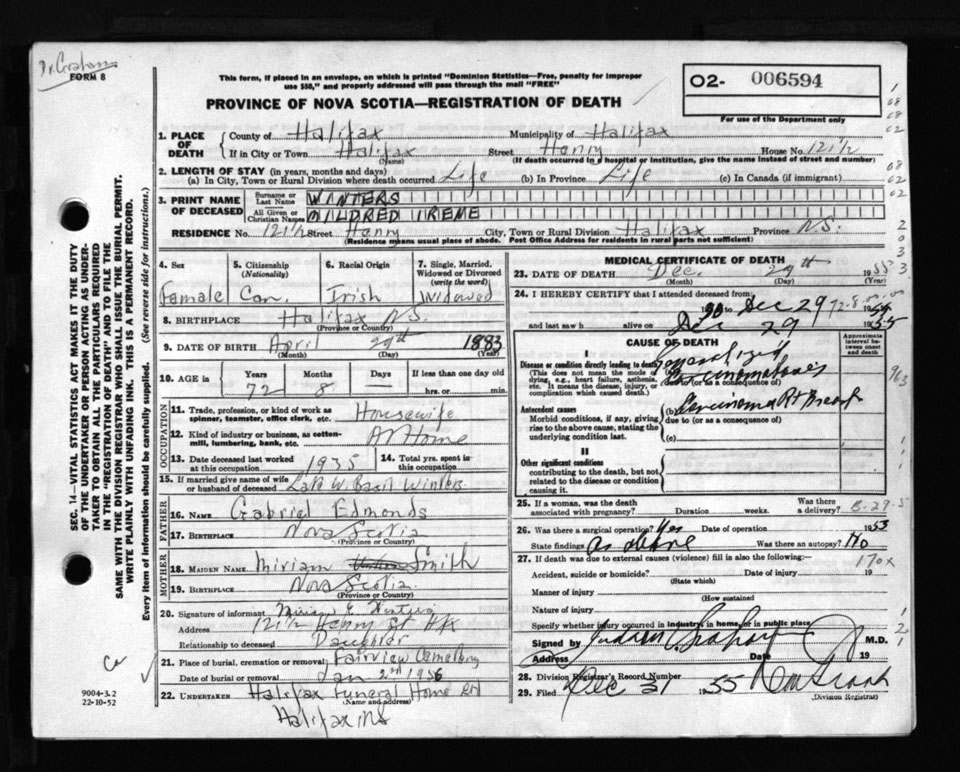 Dr Graham
FORM 8
This form, if placed in an envelope, on which is printed "Dominion Statistics—Free, penalty for improper
use $50," and properly addressed will pass through the mail "FREE"
PROVINCE OF NOVA SCOTIA—REGISTRATION OF DEATH
O2- 006594
For use of the Department only
1. PLACE OF DEATH
County of Halifax Municipality of Halifax
If in City or Town Halifax Street Henry House No. 121½
(Name) (If death occurred in a hospital or institution, give the name instead of street and number)
2. LENGTH OF STAY (in years, months and days)
(a) In City, Town or Rural Division where death occurred Life (b) In Province Life (c) In Canada (if immigrant)
3. PRINT NAME OF DECEASED
Surname or Last Name WINTERS
All Given or Christian Names MILDRED IREME
RESIDENCE No. 121½ Street Henry City, Town or Rural Division Halifax Province N.S.
(Residence means usual place of abode. Post Office Address for residents in rural parts not sufficient)
4. Sex Famale
5. Citizenship (Nationality) Can.
6. Racial Origin Irish
7. Single, Married, Widowed or Divorced (write the word) Widowed
8. BIRTHPLACE Halifax N.S.
(Province or Country)
9. DATE OF BIRTH April 29th 1883
(Month) (Day) (Year)
10. AGE in Years Months Days If less than one day old
72 8 — hrs. or min.
OCCUPATION
11. Trade, profession, or kind of work as spinner, teamster, office clerk, etc. Housewife
12. Kind of industry or business, as cotton-mill, lumbering, bank, etc. At Home
13. Date deceased last worked at this occupation 1935
14. Total yrs. spent in this occupation
15. If married give name of wife or husband of deceased Late W. Basil Winters
FATHER
16. NAME Gabriel Edmonds
17. BIRTHPLACE Nova Scotia
(Province or Country)
MOTHER
18. MAIDEN NAME Miriam Smith
19. BIRTHPLACE Nova Scotia
(Province or Country)
20. Signature of informant Miriam E. Winters
Address 121½ Henry St Hfx
Relationship to deceased Daughter
21. Place of burial, cremation or removal Fairview Cemetery
Date of burial or removal Jan 2nd 1956
22. UNDERTAKER Halifax Funeral Home
(Name and address)
Halifax NS
MEDICAL CERTIFICATE OF DEATH
23. DATE OF DEATH Dec. 29th 1955
(Month) (Day) (Year)
24. I HEREBY CERTIFY that I attended deceased from:
to Dec 29 1955
and last saw h alive on Dec 29 1955
CAUSE OF DEATH
Approximate interval between onset and death
I
Disease or condition directly leading to death
(This does not mean the mode of dying, e.g., heart failure, asthenia, etc. It means the disease, injury, or complication which caused death.)
(a) Generalized Carcinomatosis
due to (or as a consequence of)
Antecedent causes
Morbid conditions, if any, giving rise to the above cause, stating the underlying condition last.
(b) Carcinoma Rt Breast
due to (or as a consequence of)
(c)
II
Other significant conditions
contributing to the death, but not related to the disease or condition causing it.
25. If a woman, was the death associated with pregnancy? Duration weeks. Was there a delivery?
26. Was there a surgical operation? Yes Date of operation 1953
State findings as above Was there an autopsy? No
27. If death was due to external causes (violence) fill in also the following:—
170x
Accident, suicide or homicide? Date of injury 19
(State which)
Manner of injury
(How sustained
Nature of injury
Specify whether injury occurred in industry, in home, or in public place
Signed by M.D.
Address Date 19
28. Division Registrar's Record Number
29. Filed Dec 31 1955
(Division Registrar)
SEC. 14—VITAL STATISTICS ACT MAKES IT THE DUTY
OF THE UNDERTAKER OR PERSON ACTING AS UNDER-
TAKER TO OBTAIN ALL THE PARTICULARS REQUIRED
IN THE "REGISTRATION OF DEATH" AND TO FILE THE
SAME WITH THE DIVISION REGISTRAR WHO SHALL ISSUE THE BURIAL PERMIT.
WRITE PLAINLY WITH UNFADING INK. THIS IS A PERMANENT RECORD.
Every item of information should be carefully supplied. (See reverse side for instructions.)
9004-3.2
22-10-52